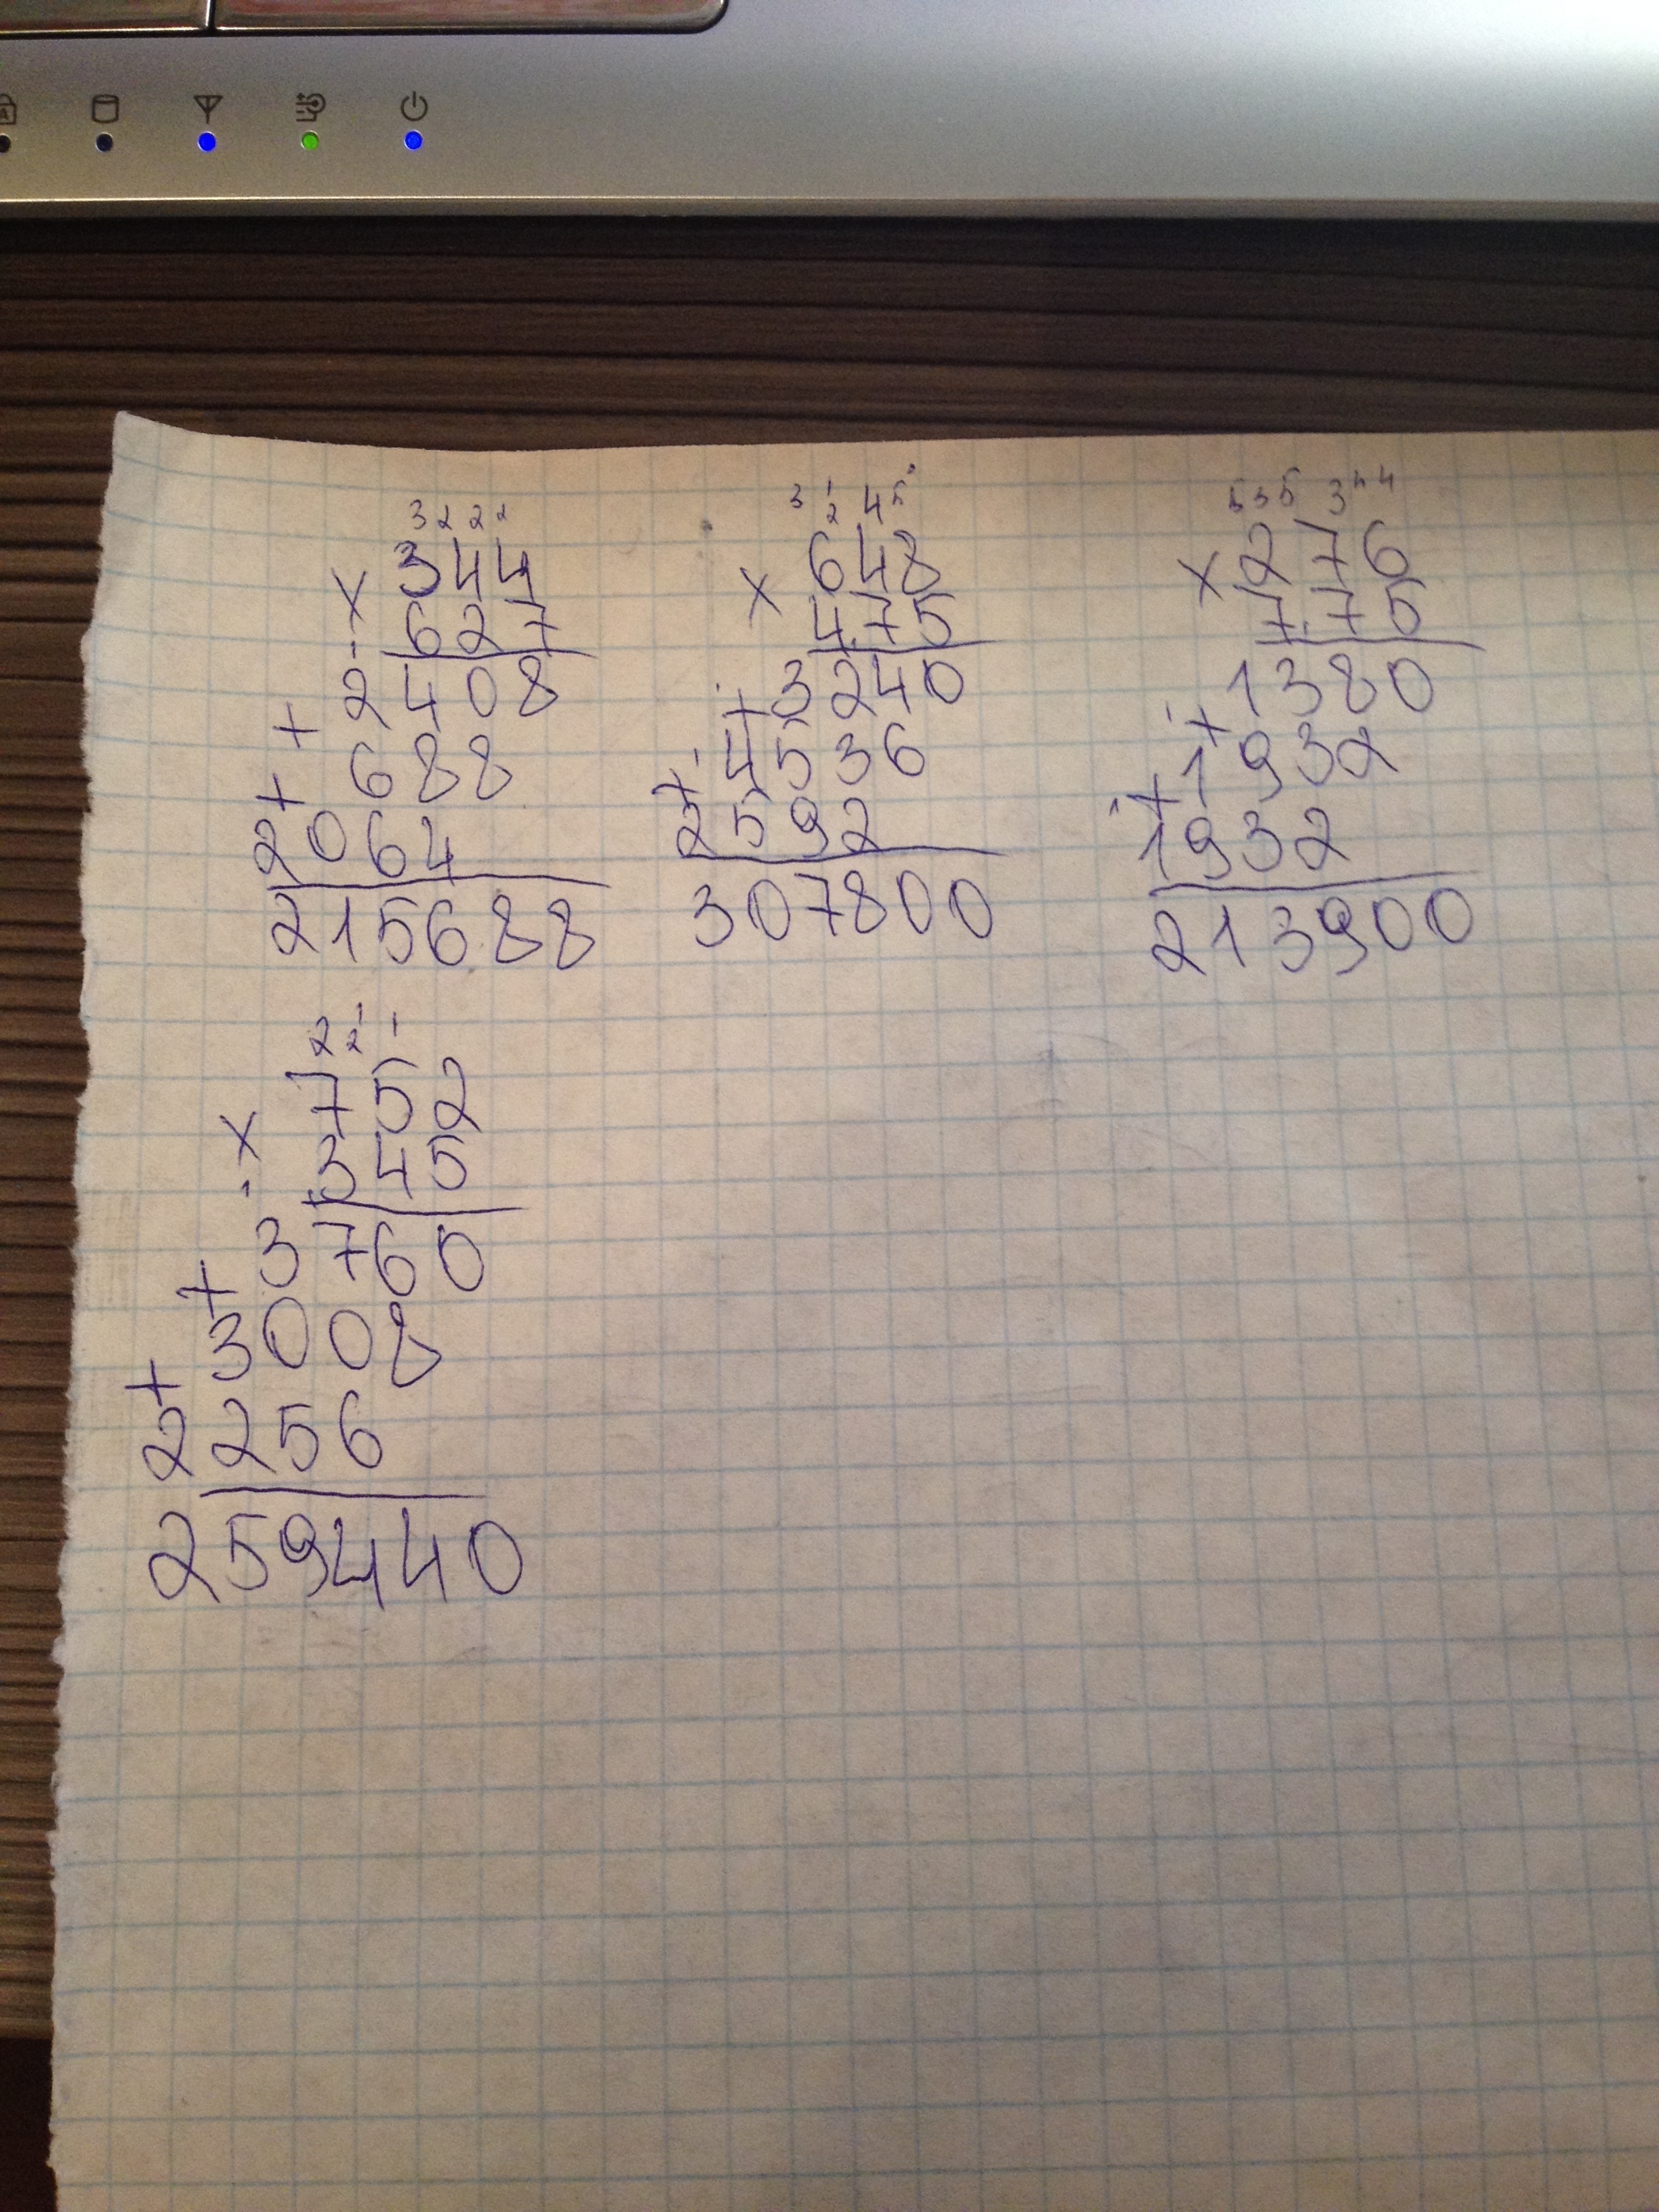 3 2 2 2
344
× 627
2408
+ 688
+ 2064
215688
3 1 2 4 5
648
× 475
3240
+ 4536
+ 2592
307800
5 3 5 3 4 4
276
× 775
1380
+ 1932
+ 1932
213900
2 2 1 1
752
× 345
3760
+ 3008
+ 2256
259440